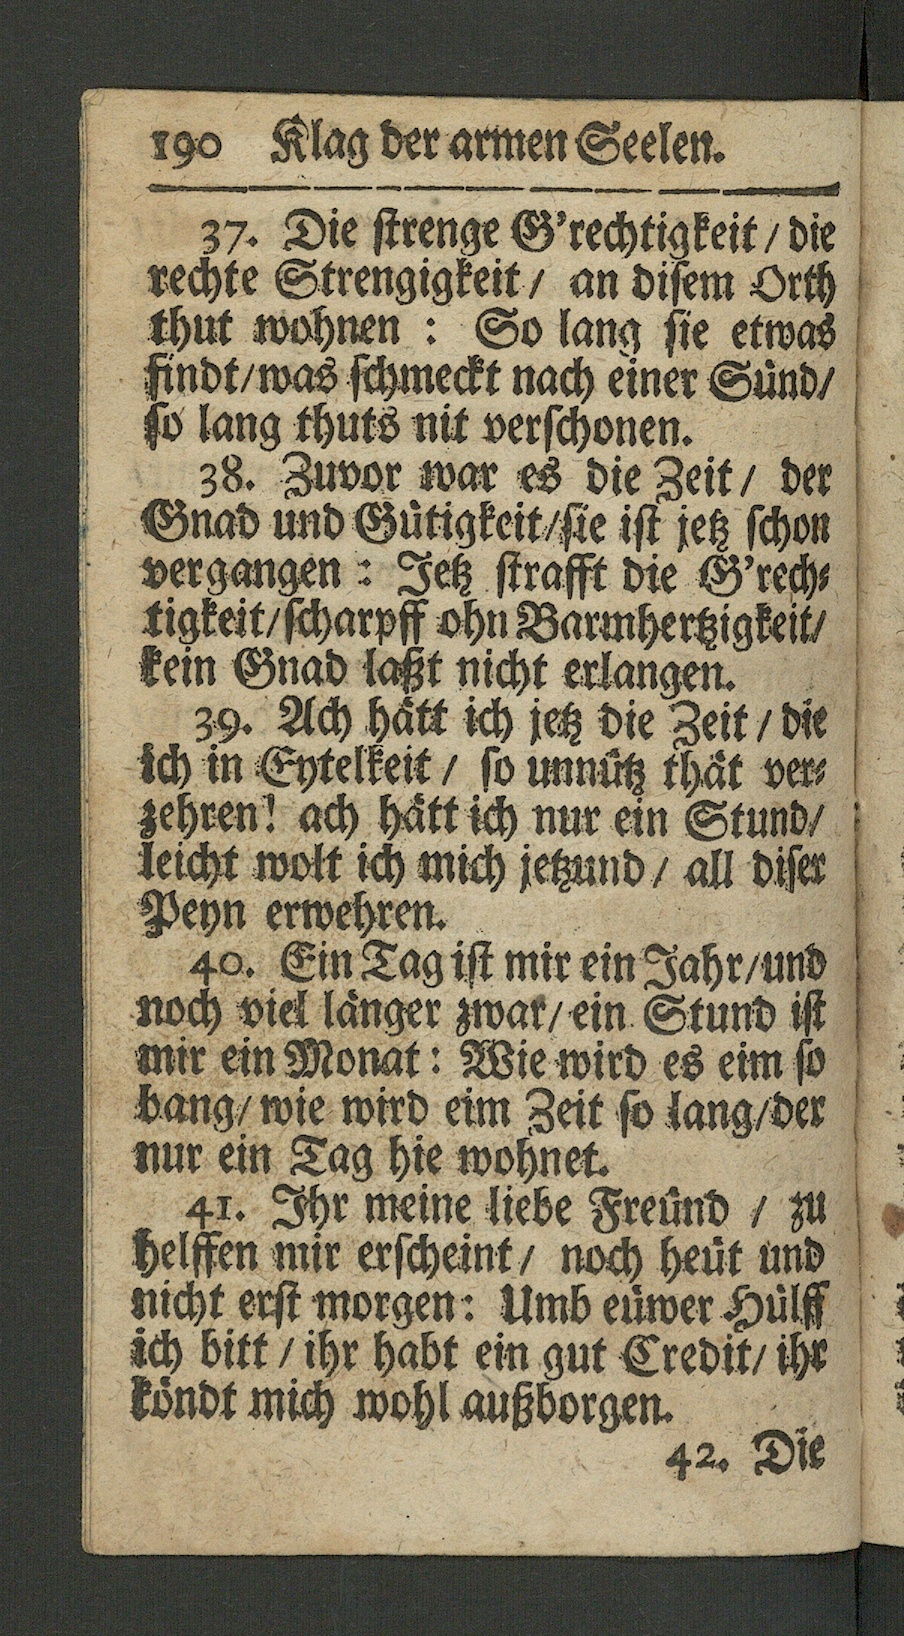 190 Klag der armen Seelen.
37. Die strenge G'rechtigkeit / die
rechte Strengigkeit / an disem Orth
thut wohnen : So lang sie etwas
findt / was schmeckt nach einer Sünd /
so lang thuts nit verschonen.
38. Zuvor war es die Zeit / der
Gnad und Gütigkeit / sie ist jetz schon
vergangen : Jetz strafft die G'rech⸗
tigkeit / scharpff ohn Barmhertzigkeit /
kein Gnad laßt nicht erlangen.
39. Ach hätt ich jetz die Zeit / die
ich in Eytelkeit / so unnütz thät ver⸗
zehren! ach hätt ich nur ein Stund /
leicht wolt ich mich jetzund / all diser
Peyn erwehren.
40. Ein Tag ist mir ein Jahr / und
noch viel länger zwar / ein Stund ist
mir ein Monat : Wie wird es eim so
bang / wie wird eim Zeit so lang / der
nur ein Tag hie wohnet.
41. Ihr meine liebe Freünd / zu
helffen mir erscheint / noch heüt und
nicht erst morgen : Umb eüwer Hülff
ich bitt / ihr habt ein gut Credit / ihr
köndt mich wohl außborgen.
42. Die